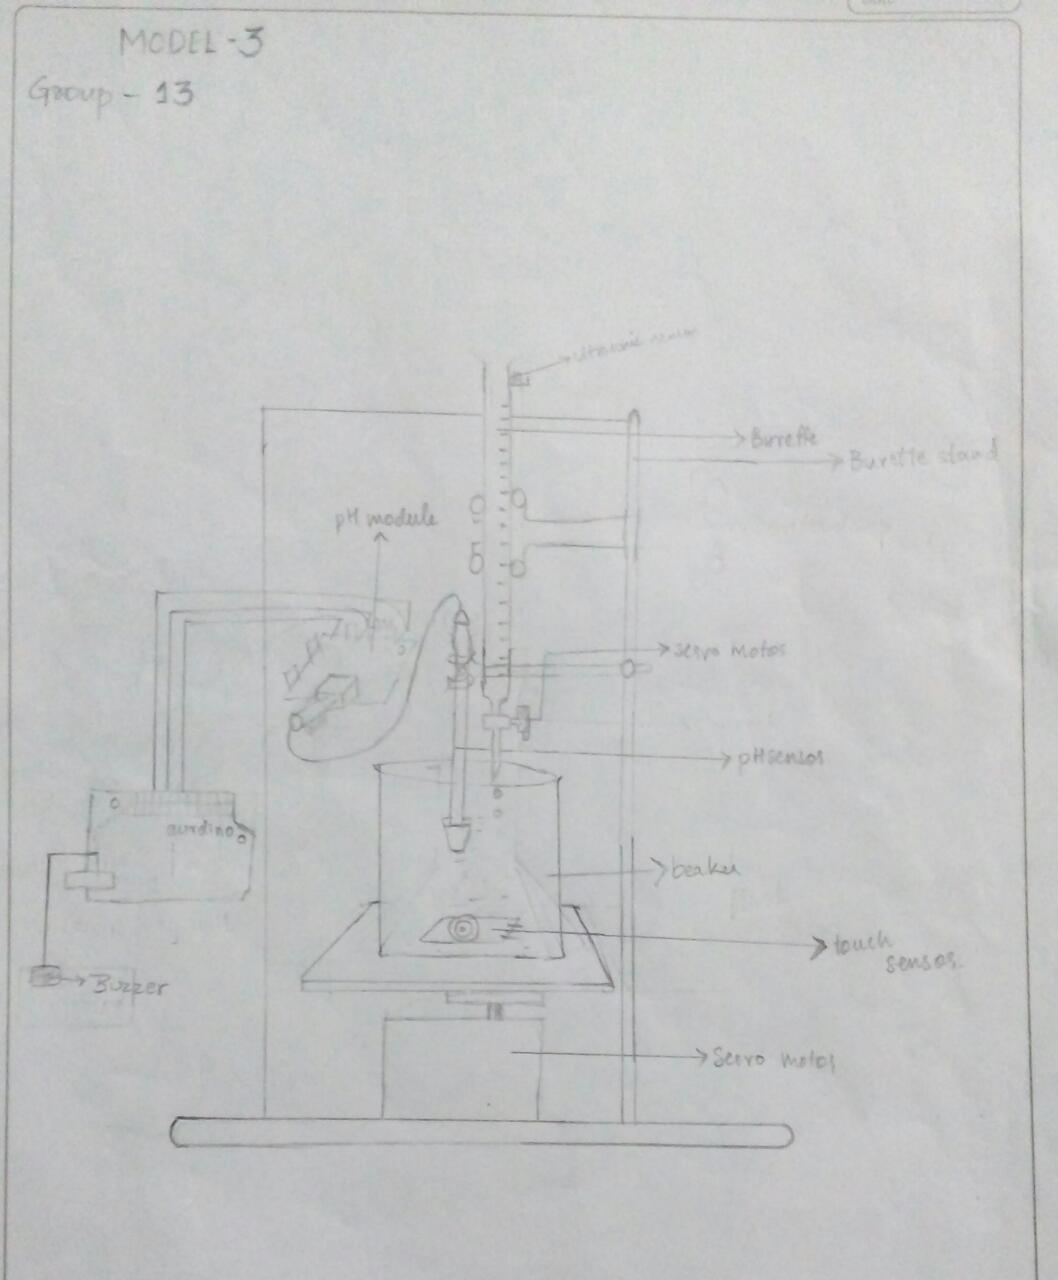 MODEL - 3
Group - 13
Burette
Burette stand
pH module
servo motor
pH sensor
aurdino
beaker
touch
sensor
Buzzer
Servo motor